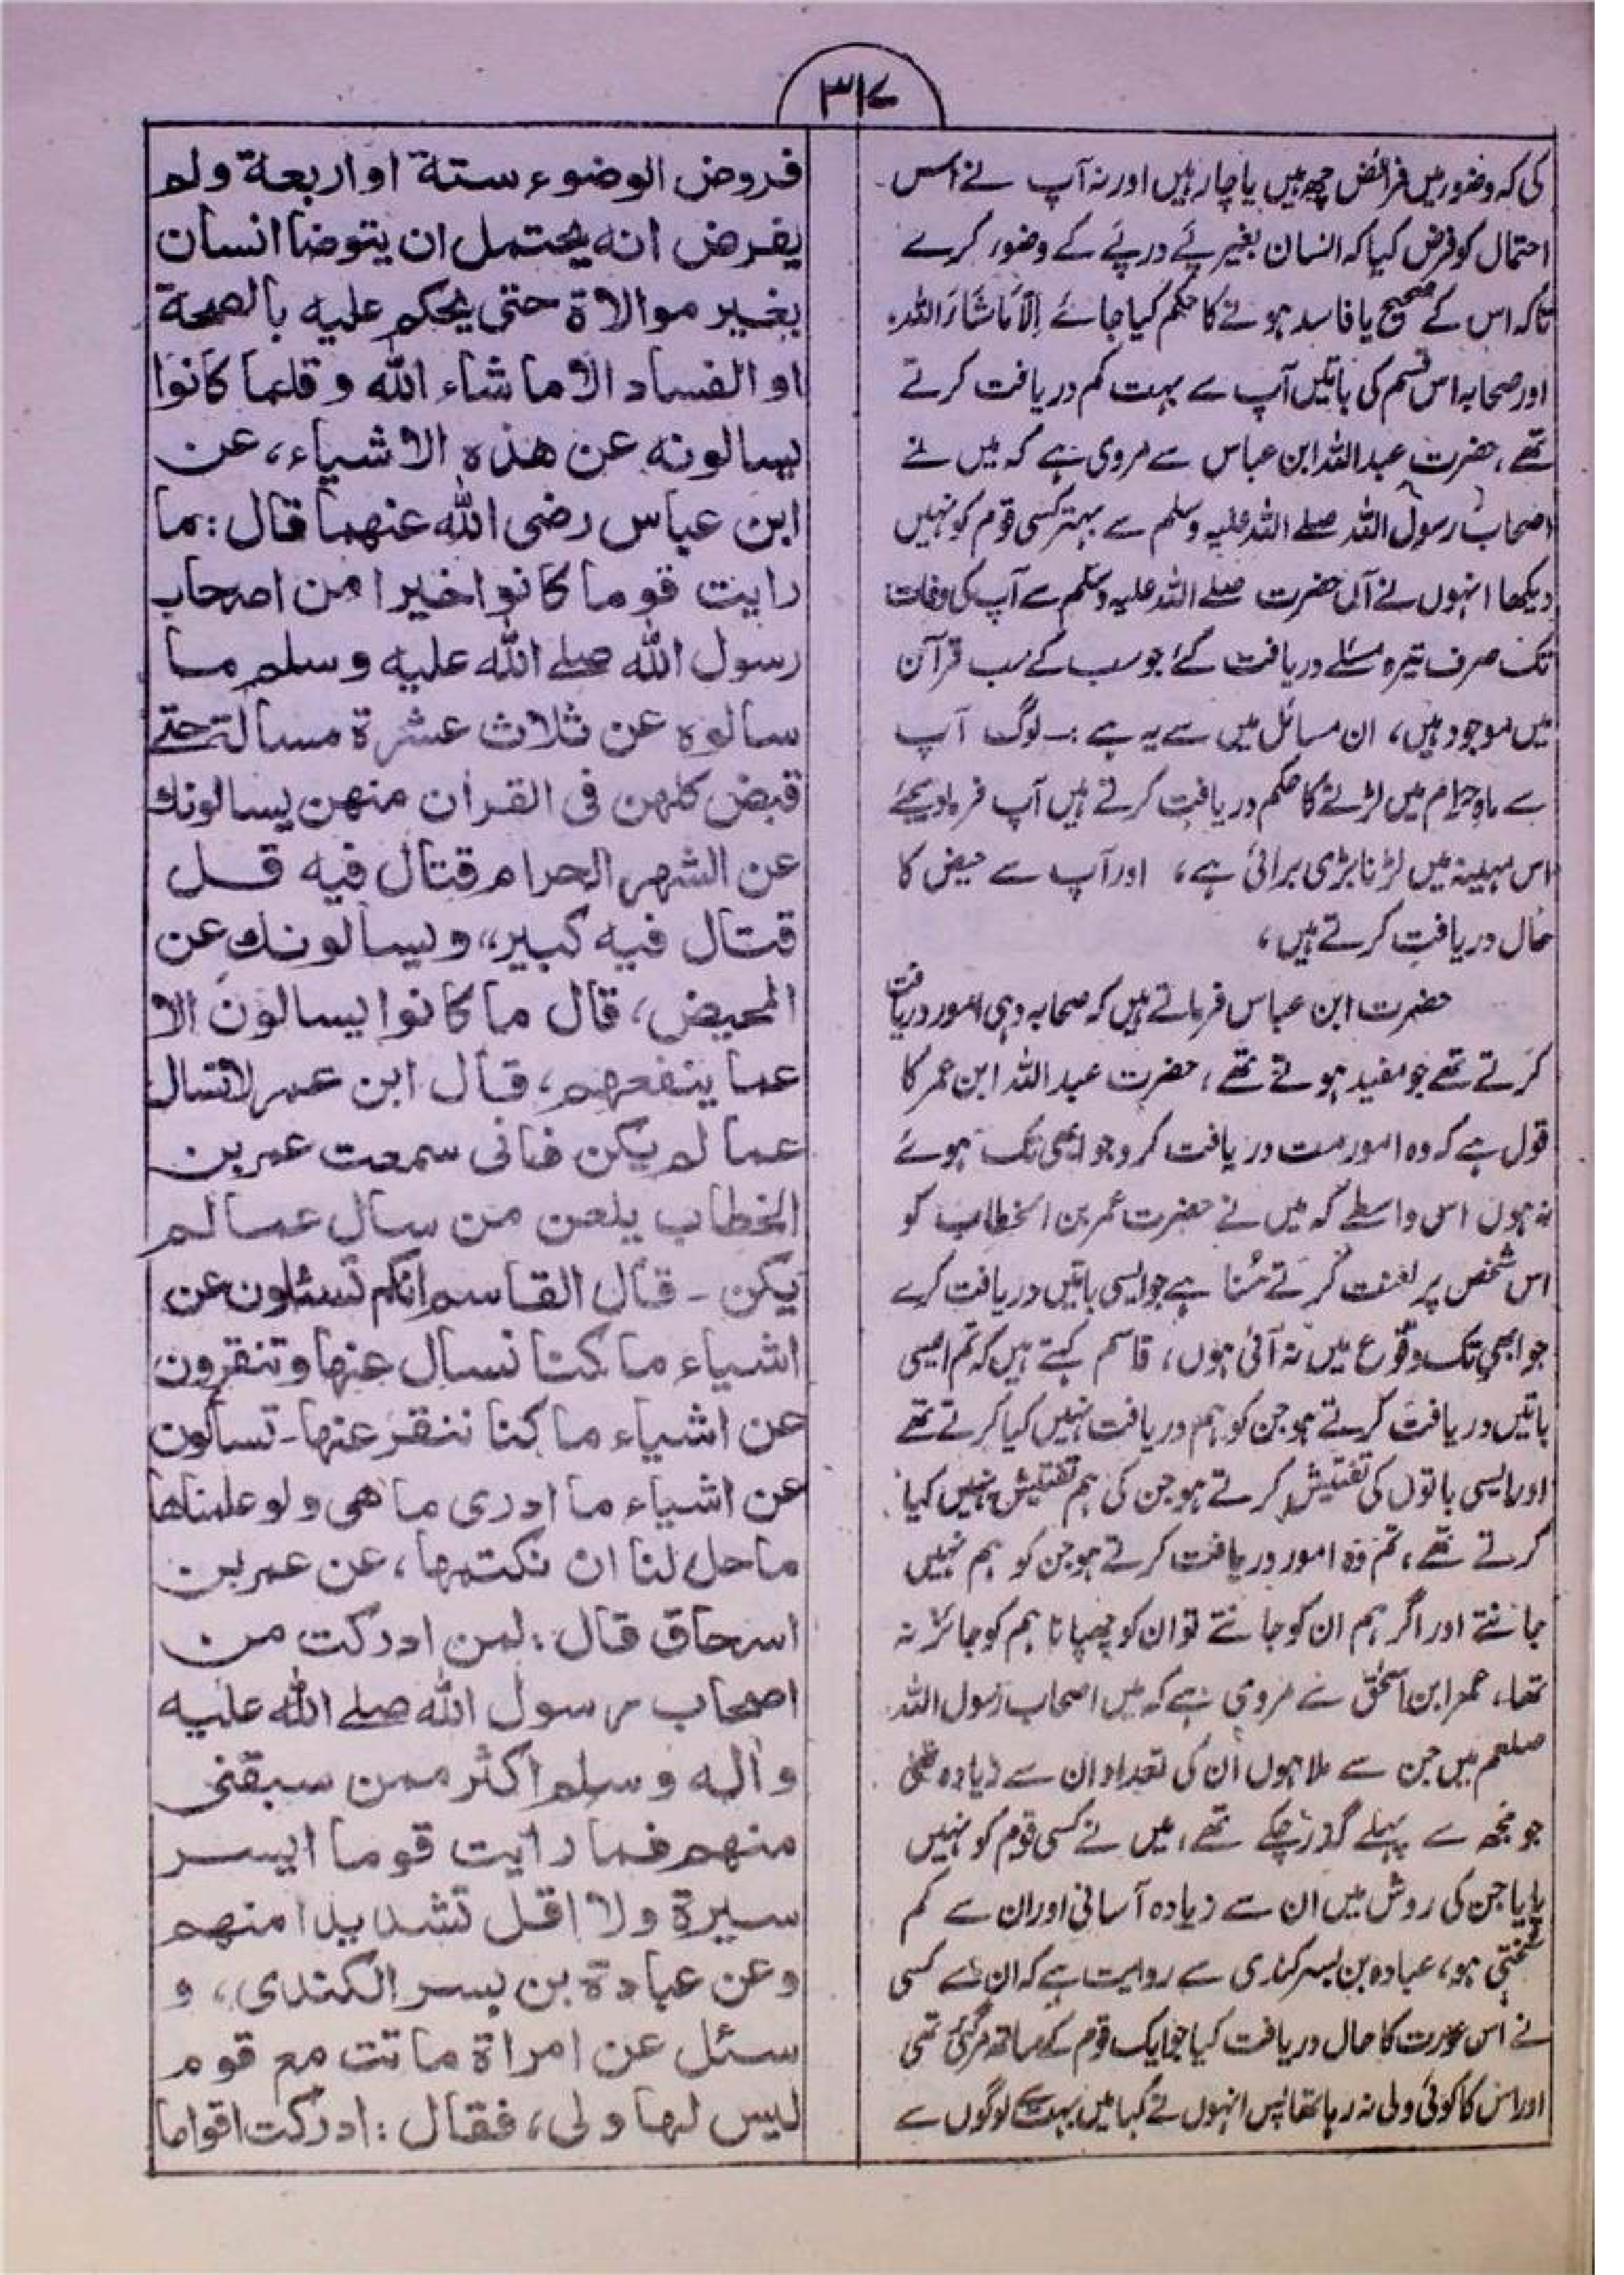 ۳۱۷
کی کہ وضور میں فرائض چھ ہیں یا چار ہیں اور نہ آپ نے اس
احتمال کو فرض کیا کہ انسان بغیر پے درپے کے وضور کرے
تاکہ اس کے صحیح یا فاسد ہونے کا حکم کیا جائے اِلَّا مَا شَاءَ اللہ،
اور صحابہ اس قسم کی باتیں آپ سے بہت کم دریافت کرتے
تھے، حضرت عبداللہ ابن عباس سے مروی ہے کہ میں نے
اصحاب رسول اللہ صلے اللہ علیہ وسلم سے بہتر کسی قوم کو نہیں
دیکھا انہوں نے آں حضرت صلے اللہ علیہ وسلم سے آپ کی وفات
تک صرف تیرہ مسئلے دریافت کئے جو سب کے سب قرآن
میں موجود ہیں، ان مسائل میں سے یہ ہے :۔ لوگ آپ
سے ماہ حرام میں لڑنے کا حکم دریافت کرتے ہیں آپ فرمادیجئے
اس مہینہ میں لڑنا بڑی برائی ہے، اور آپ سے حیض کا
حال دریافت کرتے ہیں،
حضرت ابن عباس فرماتے ہیں کہ صحابہ وہی امور دریافت
کرتے تھے جو مفید ہوتے تھے، حضرت عبداللہ ابن عمر کا
قول ہے کہ وہ امور مت دریافت کرو جو ابھی تک ہوئے
نہ ہوں اس واسطے کہ میں نے حضرت عمر بن الخطاب کو
اس شخص پر لعنت کرتے سُنا ہے جو ایسی باتیں دریافت کرے
جو ابھی تک وقوع میں نہ آئی ہوں، قاسم کہتے ہیں کہ تم ایسی
باتیں دریافت کرتے ہو جن کو ہم دریافت نہیں کیا کرتے تھے
اور ایسی باتوں کی تفتیش کرتے ہو جن کی ہم تفتیش نہیں کیا
کرتے تھے، تم وہ امور دریافت کرتے ہو جن کو ہم نہیں
جانتے اور اگر ہم ان کو جانتے تو ان کو چھپانا ہم کو جائز نہ
تھا، عمر ابن اسحٰق سے مروی ہے کہ میں اصحاب رسول اللہ
صلعم میں جن سے ملا ہوں اُن کی تعداد ان سے زیادہ تھی
جو مجھ سے پہلے گذر چکے تھے، میں نے کسی قوم کو نہیں
پایا جن کی روش میں ان سے زیادہ آسانی اور ان سے کم
سختی ہو، عبادہ بن بسر کندی سے روایت ہے کہ ان سے کسی
نے اس عورت کا حال دریافت کیا جو ایک قوم کے ساتھ مرگئی تھی
اور اس کا کوئی ولی نہ رہا تھا پس انہوں نے کہا میں بہت لوگوں سے
فروض الوضوء ستة او اربعة ولم
يفرض انه يحتمل ان يتوضا انسان
بغير موالاة حتى يحكم عليه بالصحة
او الفساد الا ما شاء الله وقلما كانوا
يسالونه عن هذه الاشياء، عن
ابن عباس رضى الله عنهما قال: ما
رايت قوما كانوا خيرا من اصحاب
رسول الله صلے الله عليه وسلم ما
سالوه عن ثلاث عشرة مسالة حتے
قبض كلهن فى القران منهن يسالونك
عن الشهر الحرام قتال فيه قل
قتال فيه كبير،، ويسالونك عن
المحيض، قال ما كانوا يسالون الا
عما ينفعهم، قال ابن عمر لا تسال
عما لم يكن فانى سمعت عمر بن
الخطاب يلعن من سال عما لم
يكن - قال القاسم انكم تسئلون عن
اشياء ما كنا نسال عنها وتنقرون
عن اشياء ما كنا ننقر عنها - تسالون
عن اشياء ما ادرى ما هى ولو علمناها
ما حل لنا ان نكتمها، عن عمر بن
اسحاق قال: لمن ادركت من
اصحاب رسول الله صلے الله عليه
واله وسلم اكثر ممن سبقنى
منهم فما رايت قوما ايسر
سيرة ولا اقل تشديدا منهم
وعن عبادة بن بسر الكندى، و
سئل عن امراة ماتت مع قوم
ليس لها ولى، فقال: ادركت اقواما